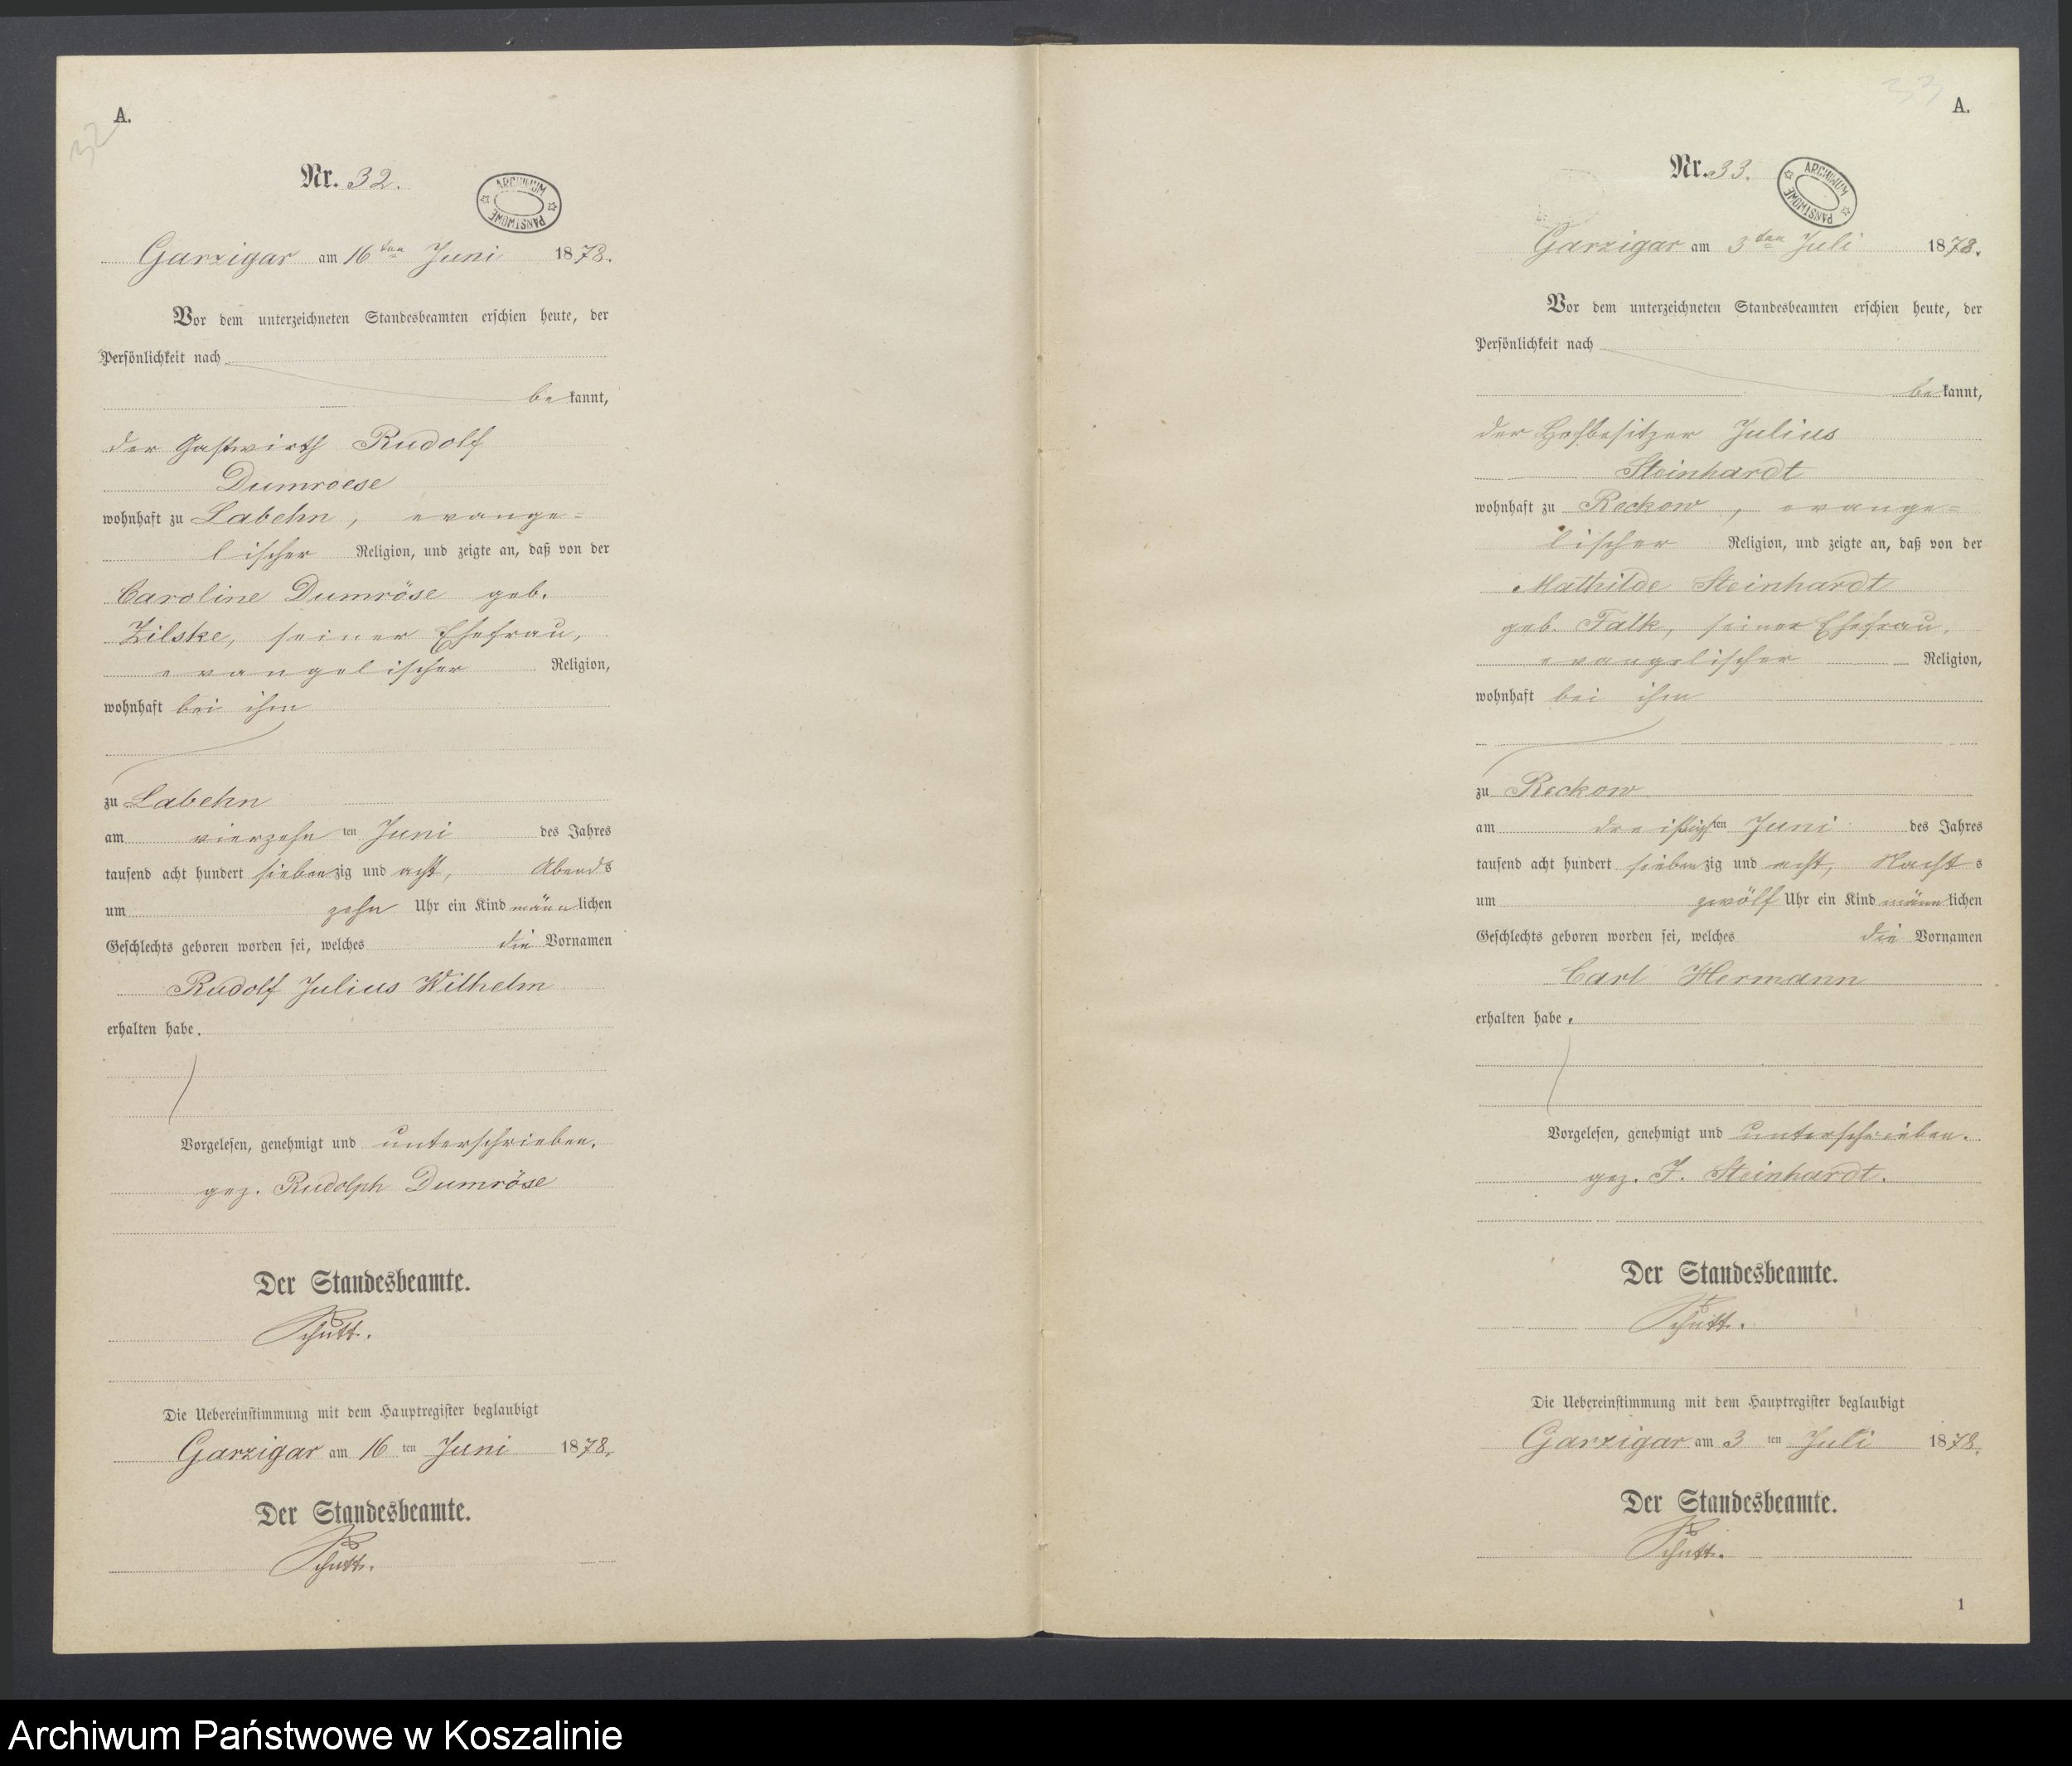 A.
32
Nr. 32.
ARCHIWUM PAŃSTWOWE
Garzigar am 16ten Juni 1878.
Vor dem unterzeichneten Standesbeamten erschien heute, der
Persönlichkeit nach
bekannt,
der Gastwirth Rudolf
Dumroese
wohnhaft zu Labehn, evange=
lischer Religion, und zeigte an, daß von der
Caroline Dumröse geb.
Zilske, seiner Ehefrau,
evangelischer Religion,
wohnhaft bei ihm
zu Labehn
am vierzehn ten Juni des Jahres
tausend acht hundert siebenzig und acht, Abends
um zehn Uhr ein Kind männlichen
Geschlechts geboren worden sei, welches die Vornamen
Rudolf Julius Wilhelm
erhalten habe.
Vorgelesen, genehmigt und unterschrieben.
gez. Rudolph Dumröse
Der Standesbeamte.
Schutt.
Die Uebereinstimmung mit dem Hauptregister beglaubigt
Garzigar am 16 ten Juni 1878.
Der Standesbeamte.
Schutt.
33
A.
Nr. 33.
ARCHIWUM PAŃSTWOWE
Garzigar am 3ten Juli 1878.
Vor dem unterzeichneten Standesbeamten erschien heute, der
Persönlichkeit nach
bekannt,
der Hofbesitzer Julius
Steinhardt
wohnhaft zu Reckow, evange=
lischer Religion, und zeigte an, daß von der
Mathilde Steinhardt
geb. Falk, seiner Ehefrau,
evangelischer Religion,
wohnhaft bei ihm
zu Reckow
am dreißigsten Juni des Jahres
tausend acht hundert siebenzig und acht, Nachts
um zwölf Uhr ein Kind männlichen
Geschlechts geboren worden sei, welches die Vornamen
Carl Hermann
erhalten habe.
Vorgelesen, genehmigt und unterschrieben.
gez. J. Steinhardt.
Der Standesbeamte.
Schutt.
Die Uebereinstimmung mit dem Hauptregister beglaubigt
Garzigar am 3 ten Juli 1878.
Der Standesbeamte.
Schutt.
1
Archiwum Państwowe w Koszalinie